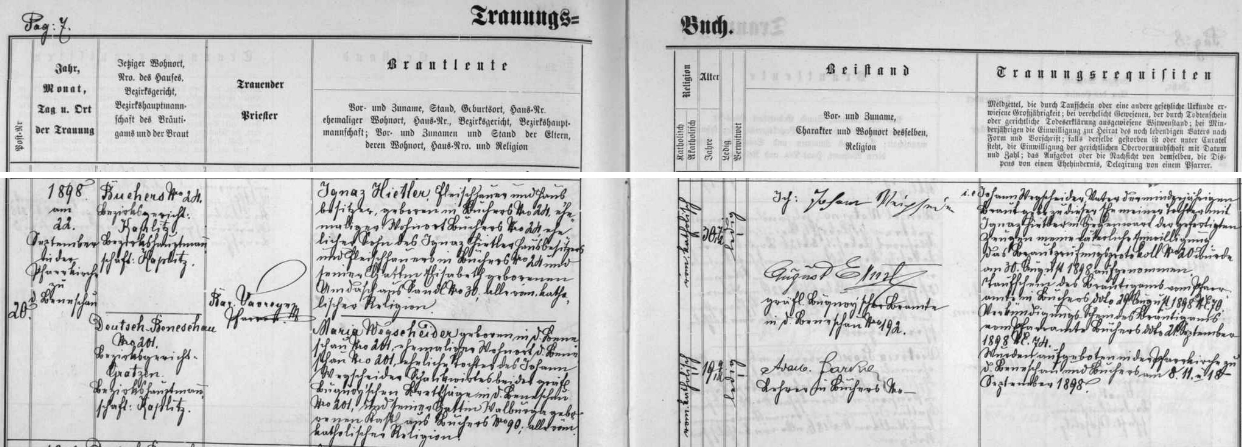 Pag: 7.
Trauungs=
Buch.
Post-Nr
Jahr,
Monat,
Tag u. Ort
der Trauung
Jetziger Wohnort,
Nro. des Hauses.
Bezirksgericht,
Bezirkshauptmann-
schaft des Bräuti-
gams und der Braut
Trauender
Priester
Brautleute
Vor- und Zuname, Stand, Geburtsort, Haus-Nr.
ehemaliger Wohnort, Haus-Nr., Bezirksgericht, Bezirkshaupt-
mannschaft; Vor- und Zunamen und Stand der Eltern,
deren Wohnort, Haus-Nro. und Religion
Religion
Katholisch
Akatholisch
Alter
Jahre
Ledig
Verwitwet
Beistand
Vor- und Zuname,
Charakter und Wohnort desselben,
Religion
Trauungsrequisiten
Meldzettel, die durch Taufschein oder eine andere gesetzliche Urkunde er-
wiesene Großjährigkeit; bei verehelicht Gewesenen, der durch Todtenschein
oder gerichtliche Todeserklärung ausgewiesene Witwenstand; bei Min-
derjährigen die Einwilligung zur Heirat des noch lebendigen Vaters nach
Form und Vorschrift; falls derselbe gestorben ist oder unter Curatel
steht, die Einwilligung der gerichtlichen Obervormundschaft mit Datum
und Zahl; das Aufgebot oder die Nachsicht von demselben, die Dis-
pens von einem Ehehindernis, Delegirung von einem Pfarrer.
20.
1898
am
22.
September
in der
Pfarrkirche
zu
D. Beneschau
Buchers No 224.
Bezirksgericht:
Kaplitz.
Bezirkshauptmann
schaft: Kaplitz.
Deutsch-Beneschau
No 201.
Bezirksgericht-
Gratzen.
Bezirkshauptmann
schaft: Kaplitz.
Pfarrer
Ignaz Hietler, Fleischhauer und Haus
besitzer, geboren in Buchers No 224, ehe
maliger Wohnort Buchers No 224, ehe
licher Sohn des Ignaz Hietler Hausbesitzers
und Fleischhauers in Buchers No 224 und
seiner Gattin Elisabeth geborenen
aus No 30, alle röm. katho
lischer Religion.
Maria Wegscheider, geboren in D. Bene
schau No 201, ehemaliger Wohnort D. Bene
schau No 201, eheliche Tochter des Johann
Wegscheider
in D. Beneschau
No 201, und seiner Gattin Walburga gebo
renen aus Buchers No 90, alle röm.
katholischer Religion
römisch katholisch
30
ledig
römisch katholisch
19
ledig
Johann
August
gräfl. Buquoy'scher Beamte
in D. Beneschau No 192.
Lehrer in Buchers No
Johann Wegscheider, Vater der minderjährigen
Braut
Ignaz Hietler in Gegenwart der gefertigten
Zeugen meine väterliche Einwilligung
Das Brautprüfungsprotokoll No 20 wurde
am 30. August 1898 aufgenommen.
Taufschein des Bräutigams vom Pfarr
amte in Buchers ddo 29 August 1898
Verkündigungsschein des Bräutigams
vom Pfarramte Buchers ddo 21 September
1898 No 74.
Wurden aufgeboten in der Pfarrkirche zu
D. Beneschau und Buchers am 8. 11. u 18ten
September 1898.